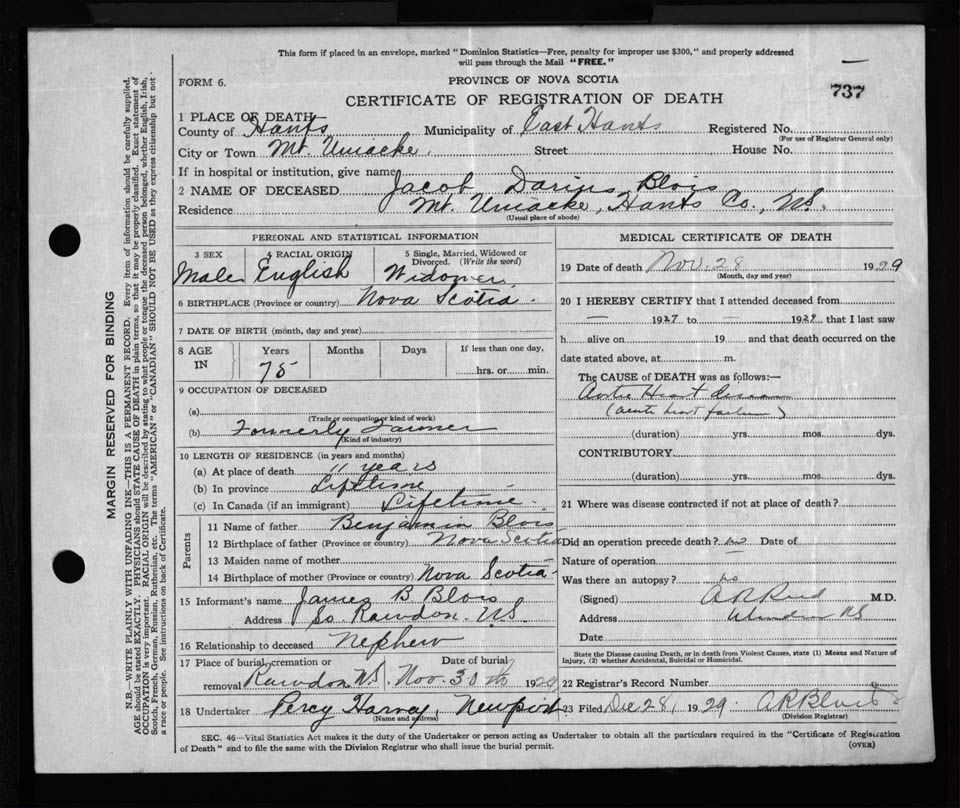 This form if placed in an envelope, marked "Dominion Statistics—Free, penalty for improper use $300," and properly addressed
will pass through the Mail "FREE."
FORM 6.
PROVINCE OF NOVA SCOTIA
737
CERTIFICATE OF REGISTRATION OF DEATH
1 PLACE OF DEATH
County of Hants Municipality of East Hants Registered No.
(For use of Registrar General only)
City or Town Mt. Uniacke. Street House No.
If in hospital or institution, give name
2 NAME OF DECEASED Jacob Darius Blois
Residence Mt. Uniacke, Hants Co., N.S.
(Usual place of abode)
PERSONAL AND STATISTICAL INFORMATION
3 SEX 4 RACIAL ORIGIN 5 Single, Married, Widowed or
Divorced. (Write the word)
Male English Widower
6 BIRTHPLACE (Province or country) Nova Scotia.
7 DATE OF BIRTH (month, day and year)
8 AGE IN Years Months Days If less than one day,
75 hrs. or min.
9 OCCUPATION OF DECEASED
(a)
(Trade or occupation or kind of work)
(b) Formerly Farmer
(Kind of industry)
10 LENGTH OF RESIDENCE (in years and months)
(a) At place of death 11 years
(b) In province Lifetime
(c) In Canada (if an immigrant) Lifetime.
Parents
11 Name of father Benjamin Blois
12 Birthplace of father (Province or country) Nova Scotia
13 Maiden name of mother —
14 Birthplace of mother (Province or country) Nova Scotia
15 Informant's name James B Blois
Address So. Rawdon. N.S
16 Relationship to deceased Nephew
17 Place of burial, cremation or Date of burial
removal Rawdon N.S. Nov. 30th 1929
18 Undertaker Percy Harvey, Newport
(Name and address)
MEDICAL CERTIFICATE OF DEATH
19 Date of death Nov. 28 1929
(Month, day and year)
20 I HEREBY CERTIFY that I attended deceased from
— 1927 to — 1929 that I last saw
h alive on 19 and that death occurred on the
date stated above, at m.
The CAUSE OF DEATH was as follows:—
Heart
(acute heart failure)
(duration) yrs. mos. dys.
CONTRIBUTORY
(duration) yrs. mos. dys.
21 Where was disease contracted if not at place of death?
Did an operation precede death? no Date of
Nature of operation
Was there an autopsy? no
(Signed) M.D.
Address N S
Date
State the Disease causing Death, or in death from Violent Causes, state (1) Means and Nature of
Injury, (2) whether Accidental, Suicidal or Homicidal.
22 Registrar's Record Number
23 Filed Dec 28, 1929. A R Blois
(Division Registrar)
SEC. 46—Vital Statistics Act makes it the duty of the Undertaker or person acting as Undertaker to obtain all the particulars required in the "Certificate of Registration
of Death" and to file the same with the Division Registrar who shall issue the burial permit.
(OVER)
MARGIN RESERVED FOR BINDING
N.B.—WRITE PLAINLY WITH UNFADING INK—THIS IS A PERMANENT RECORD. Every item of information should be carefully supplied.
AGE should be stated EXACTLY. PHYSICIANS should STATE CAUSE OF DEATH in plain terms, so that it may be properly classified. Exact statement of
OCCUPATION is very important. RACIAL ORIGIN will be described by stating to what people or tongue the deceased person belonged, whether English, Irish,
Scotch, French, German, Russian, Ruthenian, etc. The terms "AMERICAN" or "CANADIAN" SHOULD NOT BE USED as they express citizenship but not
a race or people. See instructions on back of Certificate.